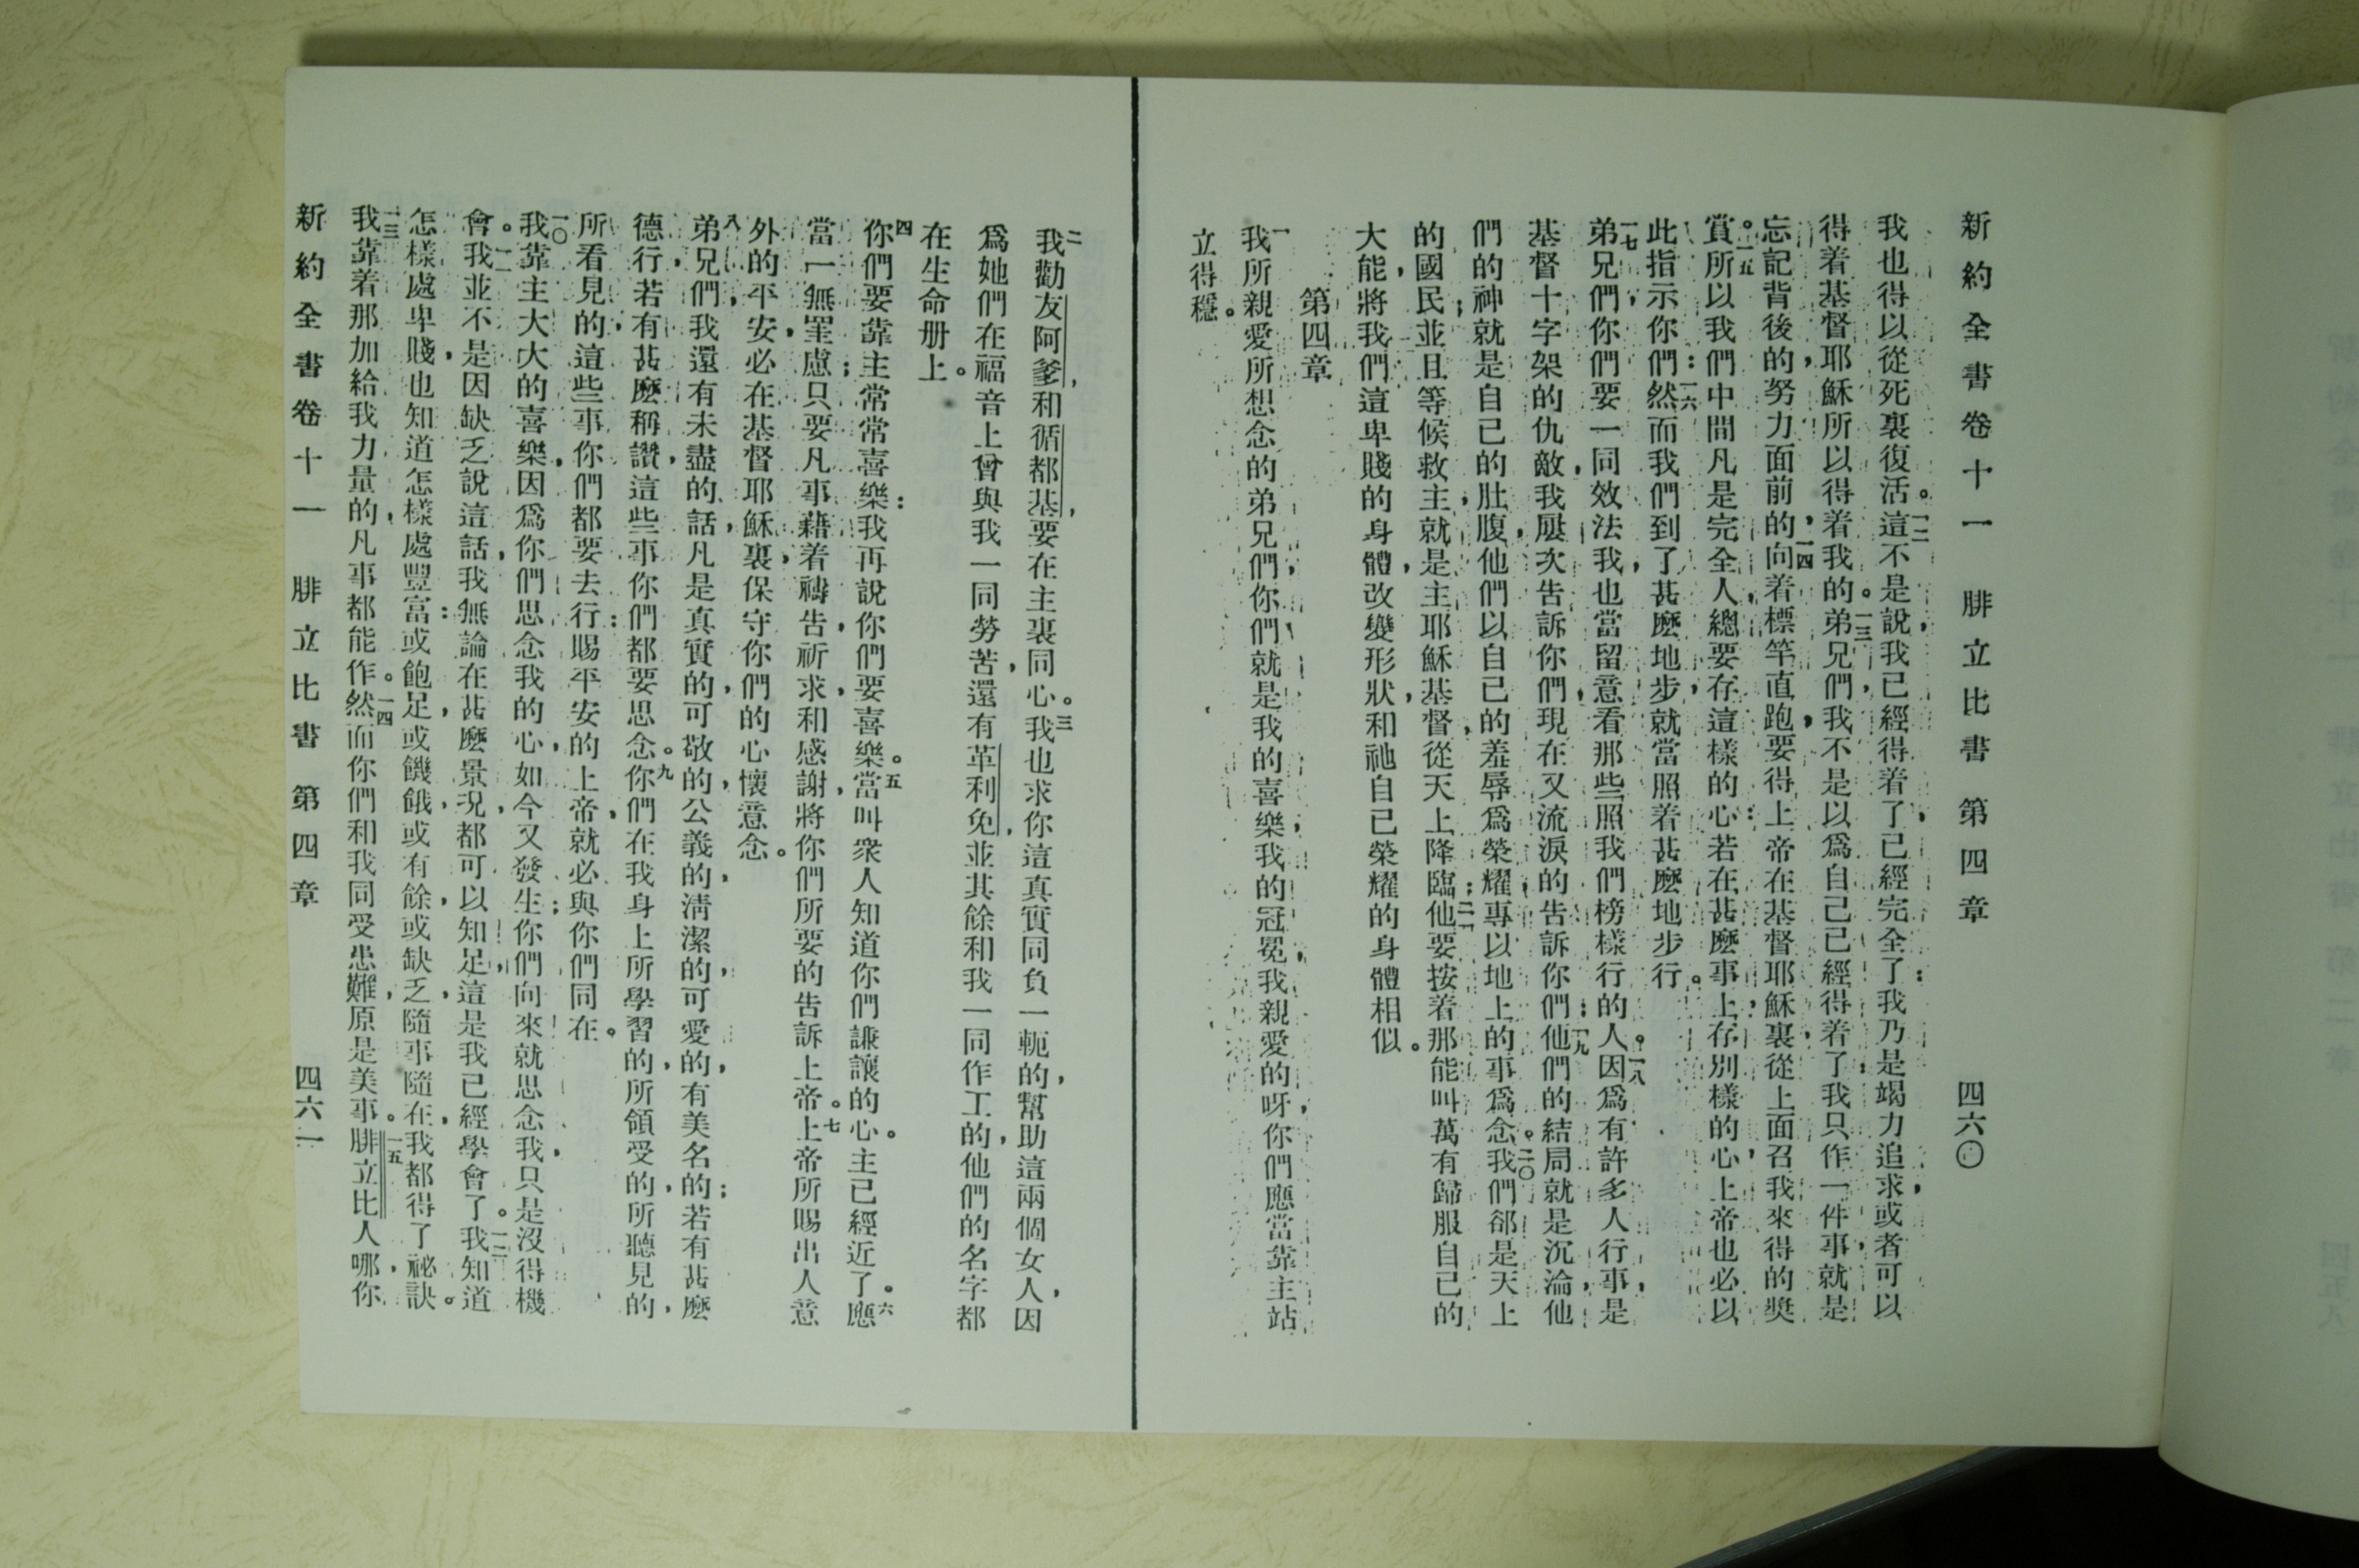 新約全書卷十一 腓立比書 第四章 四六〇
我也得以從死裏復活。一二這不是說，我已經得着了，已經完全了：我乃是竭力追求，或者可以
得着基督耶穌所以得着我的。一三弟兄們，我不是以爲自己已經得着了；我只作一件事，就是
忘記背後的，努力面前的，一四向着標竿直跑，要得上帝在基督耶穌裏從上面召我來得的獎
賞。一五所以我們中間凡是完全人，總要存這樣的心：若在甚麽事上，存別樣的心，上帝也必以
此指示你們：一六然而我們到了甚麽地步，就當照着甚麽地步行。
一七弟兄們，你們要一同效法我，也當留意看那些照我們榜樣行的人。一八因爲有許多人行事，是
基督十字架的仇敵，我屢次告訴你們，現在又流淚的告訴你們：一九他們的結局，就是沉淪，他
們的神，就是自己的肚腹，他們以自己的羞辱爲榮耀，專以地上的事爲念。二〇我們卻是天上
的國民；並且等候救主，就是主耶穌基督，從天上降臨：二一他要按着那能叫萬有歸服自己的
大能，將我們這卑賤的身體，改變形狀，和祂自己榮耀的身體相似。
第四章
一我所親愛所想念的弟兄們，你們就是我的喜樂，我的冠冕，我親愛的呀，你們應當靠主站
立得穩。
二我勸友阿爹，和循都基，要在主裏同心。三我也求你這真實同負一軛的，幫助這兩個女人，因
爲她們在福音上曾與我一同勞苦，還有革利免，並其餘和我一同作工的，他們的名字都
在生命册上。
四你們要靠主常常喜樂：我再說，你們要喜樂。五當叫衆人知道你們謙讓的心。主已經近了。六應
當一無罣慮；只要凡事藉着禱告，祈求，和感謝，將你們所要的告訴上帝。七上帝所賜出人意
外的平安，必在基督耶穌裏，保守你們的心懷意念。
八弟兄們，我還有未盡的話，凡是真實的，可敬的，公義的，清潔的，可愛的，有美名的；若有甚麽
德行，若有甚麽稱讚，這些事你們都要思念。九你們在我身上所學習的，所領受的，所聽見的，
所看見的；這些事你們都要去行：賜平安的上帝，就必與你們同在。
一〇我靠主大大的喜樂，因爲你們思念我的心，如今又發生；你們向來就思念我，只是沒得機
會。一一我並不是因缺乏說這話，我無論在甚麽景況，都可以知足，這是我已經學會了。一二我知道
怎樣處卑賤，也知道怎樣處豐富：或飽足，或饑餓，或有餘，或缺乏，隨事隨在，我都得了祕訣。
一三我靠着那加給我力量的，凡事都能作。一四然而你們和我同受患難，原是美事。一五腓立比人哪，你
新約全書卷十一 腓立比書 第四章 四六一